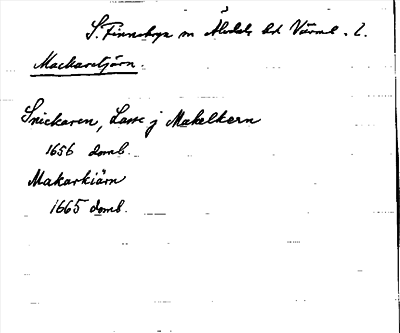 S. Finnskoga sn Älvdals hd Värml. l.
Mackaretjärn.
Snickaren, Lasse j Makelkern
1656 domb.
Makarkiärn
1665 domb.